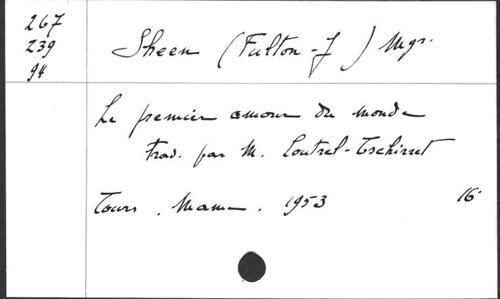 267
239
94
Sheen (Fulton-J) Mgr.
Le premier amour du monde
Trad. par M. Loutrel-Tschirret
Tours. Mame. 1953 16°